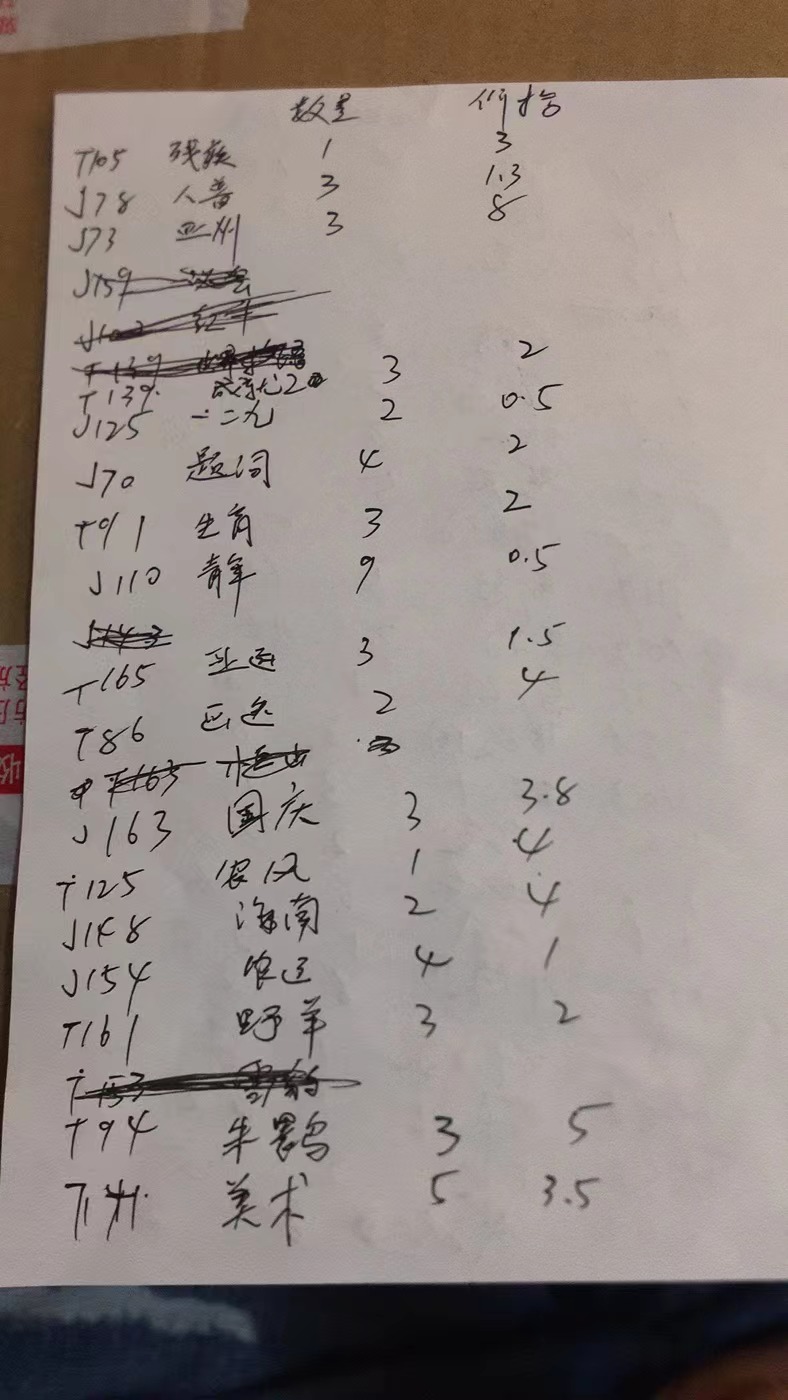 数量 价格
T105 残疾 1 3
J78 人普 3 1.3
J73 亚州 3 8
J159
J102 红军
T139
T139. 2 3 2
J125 一二九 2 0.5
J70 题词 4 2
T91 生育 3 2
J110 青年 9 0.5
J143
T165 亚运 3 1.5
T86 亚运 2 4
T163
J163 国庆 3 3.8
T125 农风 1 4
J148 海南 2 4
J154 农运 4 1
T161 野羊 3 2
T153 雪豹
T94 朱鹮鸟 3 5
T141. 美术 5 3.5